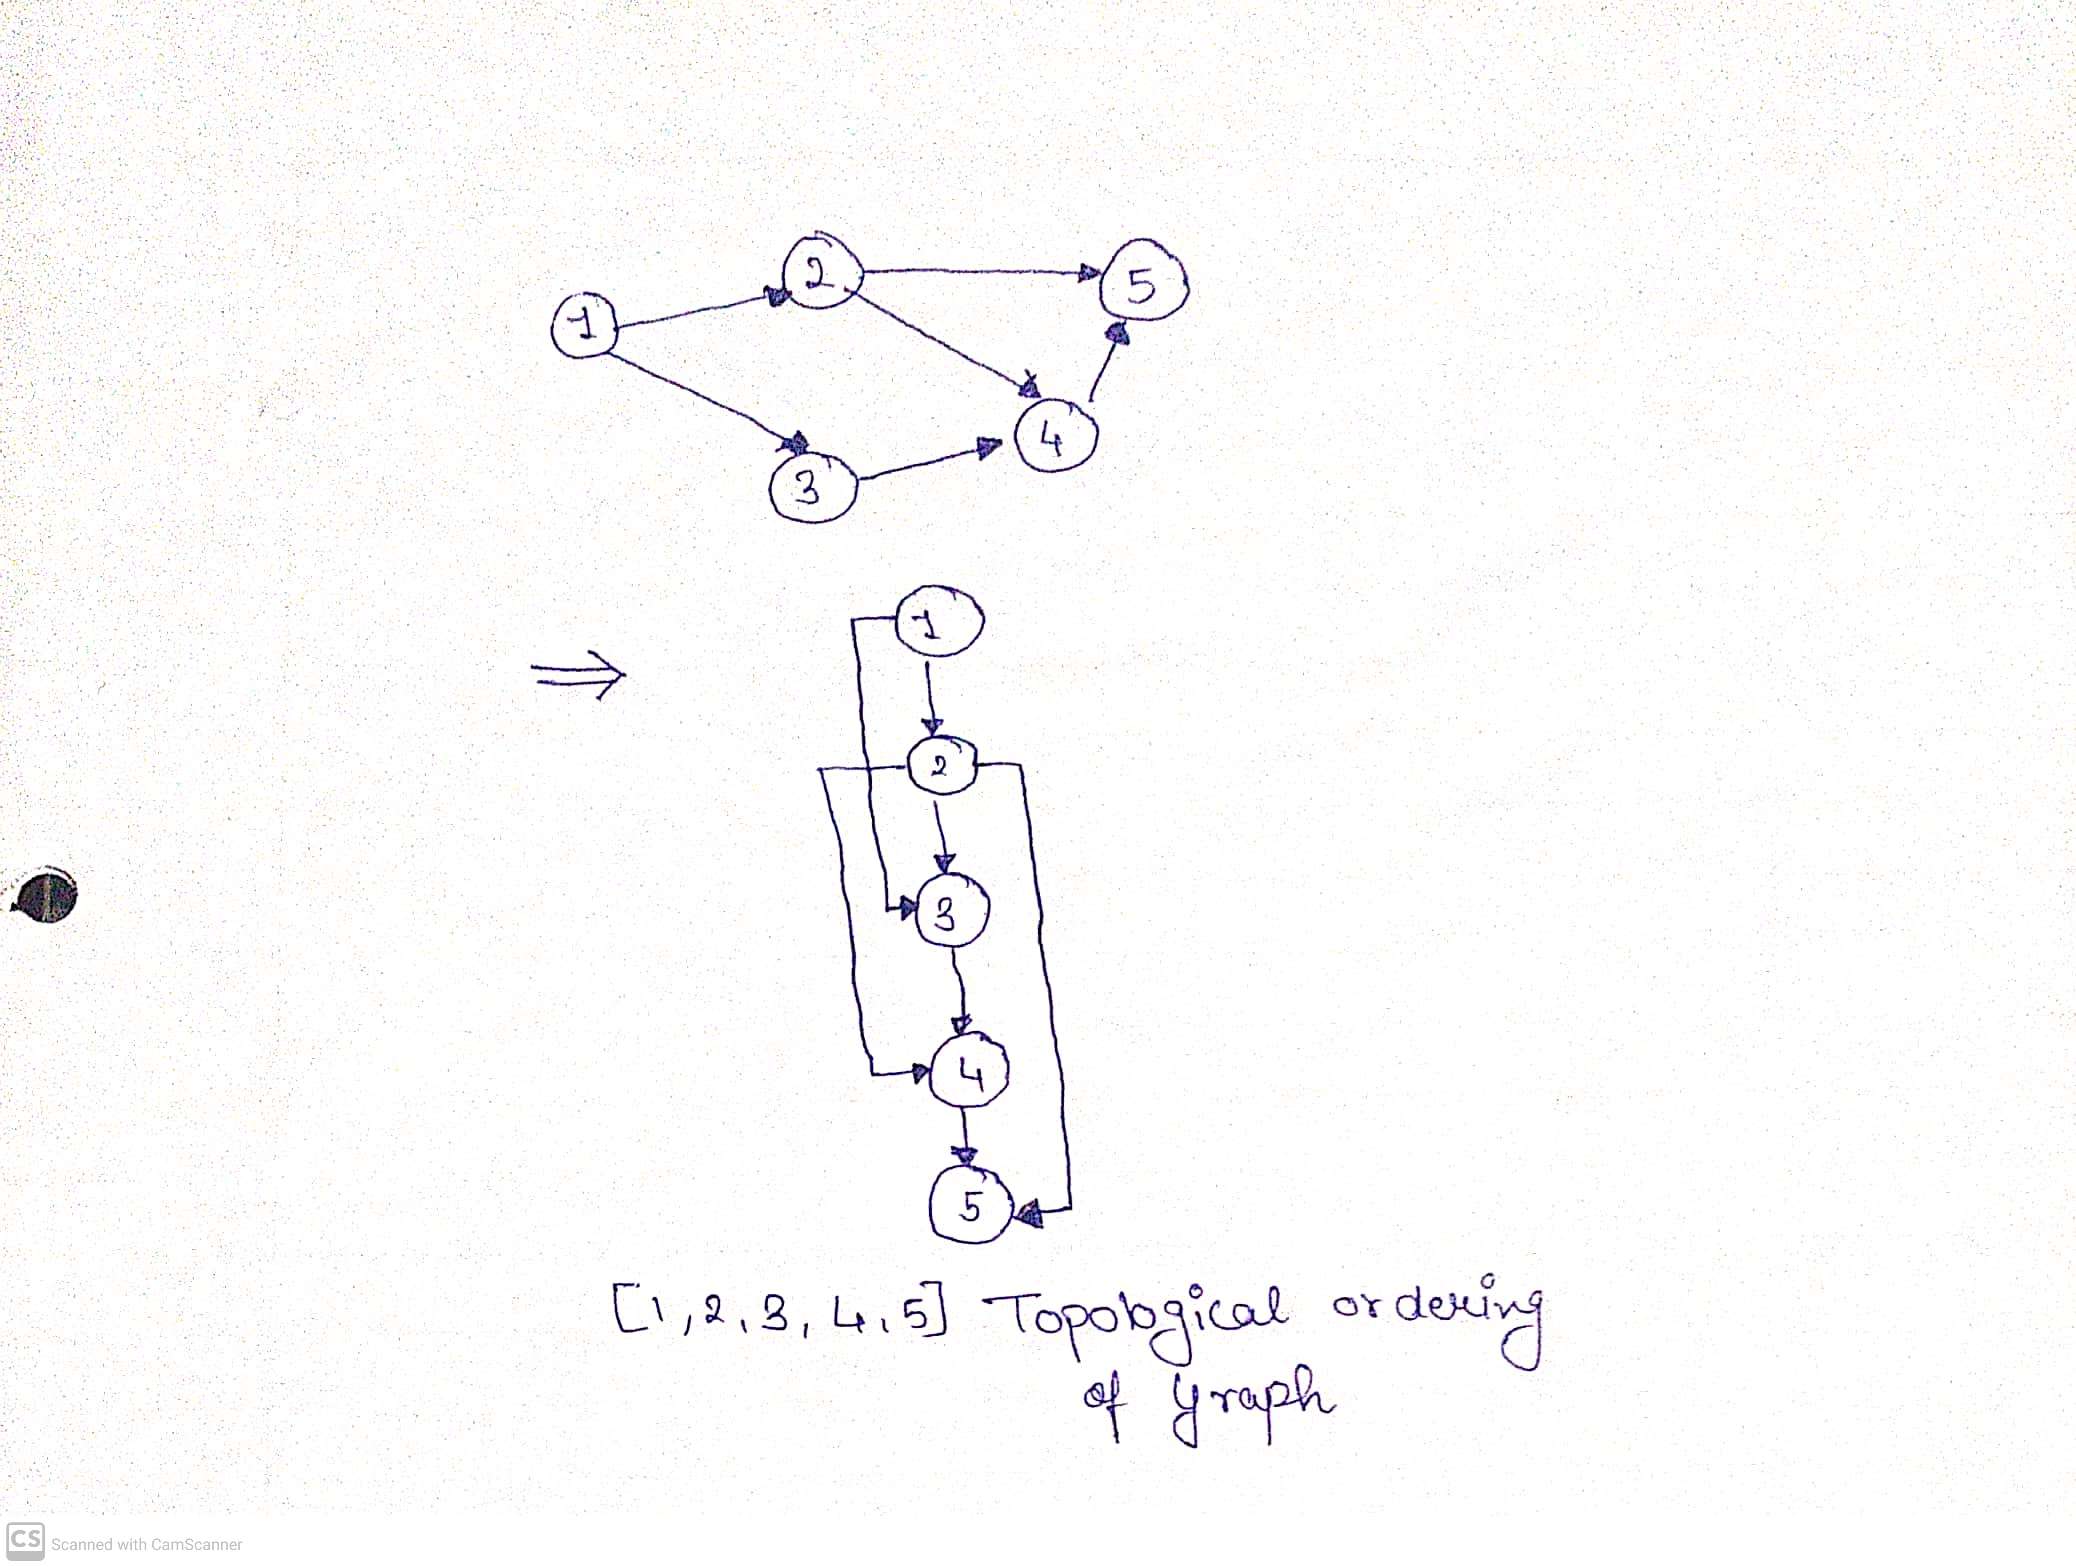 2
5
1
4
3
1
2
3
4
5
[1,2,3,4,5] Topological ordering
of graph
CS Scanned with CamScanner